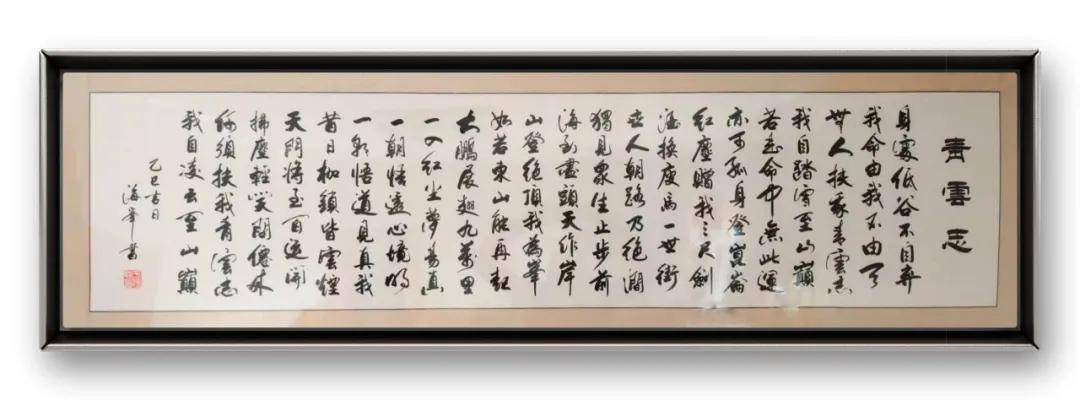 青雲志
身處低谷不自弃
我命由我不由天
人扶我青雲志
我自踏雪至山巔
若是命中無此運
亦可孤身登崑崙
紅塵贈我三尺劍
換瘦馬一世
世人朝路乃絕澗
獨見眾生止步前
海到盡頭天作岸
山登絕頂我為峰
如若東山能再起
大鵬展翅九萬里
一入紅尘夢當真
一朝悟透心境明
一朝悟道見真我
昔日枷鎖皆雲煙
天門將至百運開
拂塵輕笑問僊
你須扶我青雲志
我自凌雲至山巔
乙巳吉日
海峯書